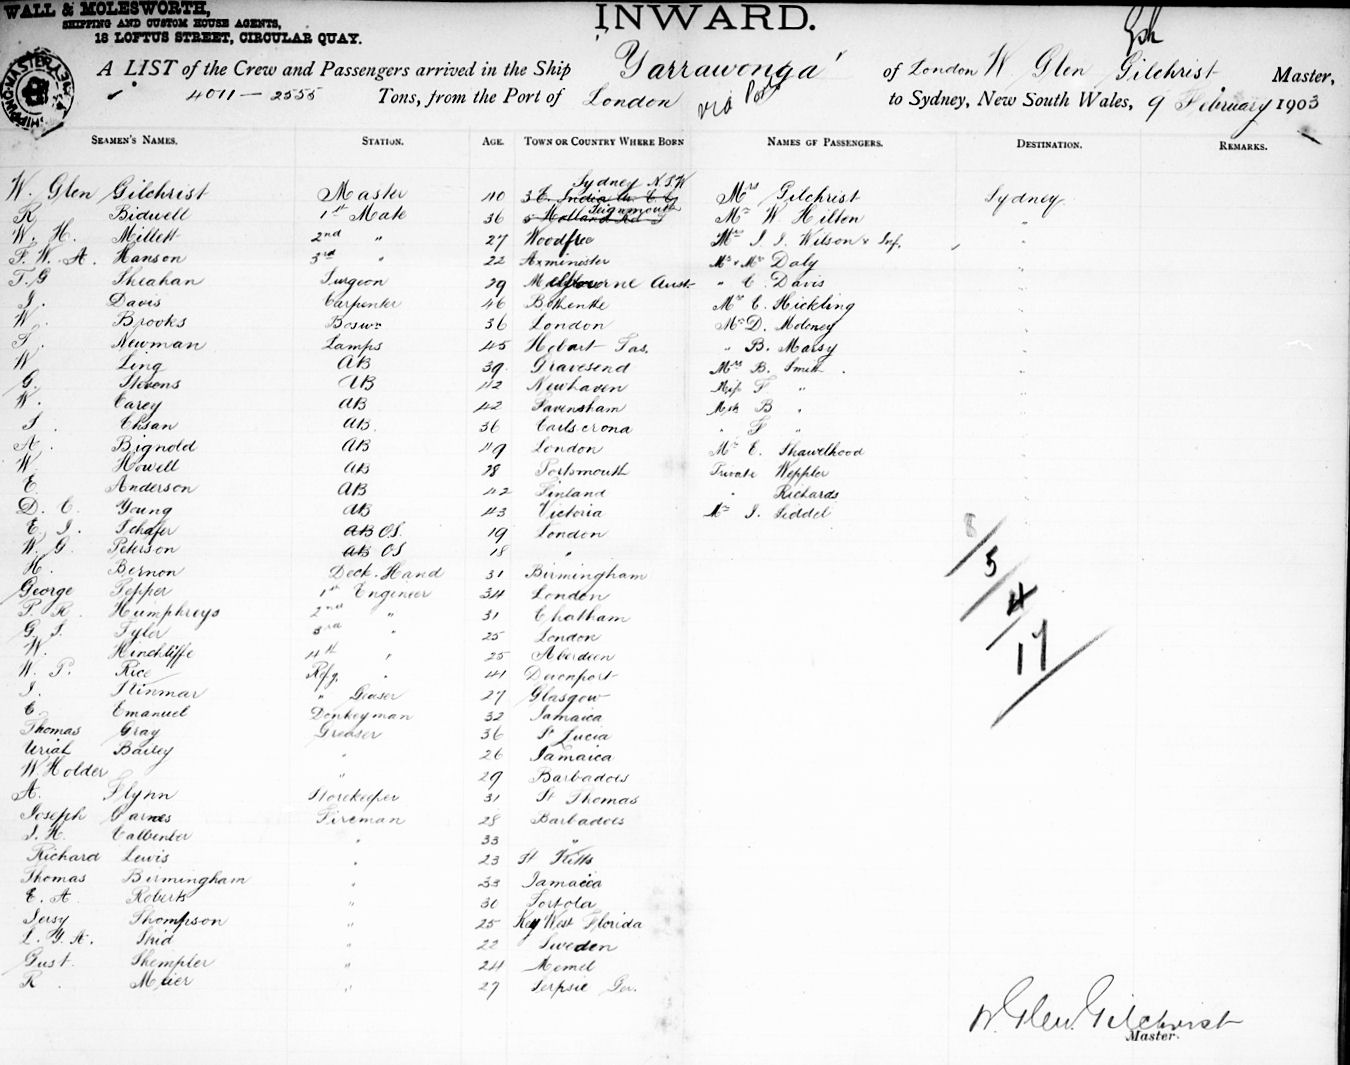 WALL & MOLESWORTH,
SHIPPING AND CUSTOM HOUSE AGENTS,
18 LOFTUS STREET, CIRCULAR QUAY.
INWARD.
A LIST of the Crew and Passengers arrived in the Ship Yarrawonga of London W. Glen Gilchrist Master,
4011 — 2555 Tons, from the Port of London via Ports to Sydney, New South Wales, 9 February 1903
SEAMEN'S NAMES. STATION. AGE. TOWN OR COUNTRY WHERE BORN NAMES OF PASSENGERS. DESTINATION. REMARKS.
Sydney N.S.W
W. Glen Gilchrist Master 40 Mrs Gilchrist Sydney
R Bidwell 1st Mate 36 Teignmouth Mr W Hilton "
W. H. Millett 2nd " 27 Woodfree Mrs J. J. Wilson & Inf. "
F. W. A. Hanson 3rd " 22 Axminister Mr & Mrs Daly "
T. G Sheahan Surgeon 29 Melbourne Aust. " C. Davis "
J. Davis Carpenter 46 Mr E. Hickling "
W. Brooks Bosun 36 London Mr D. Moloney "
T. Newman Lamps 45 Hobart Tas. " B. Marsy "
W Ling AB 39 Gravesend Mrs B. Smith "
G. Stevens AB 42 Newhaven Miss F " "
W. Carey AB 42 Favensham Mstr B " "
J. Ehsan AB. 36 Carlscrona " F " "
A. Bignold AB 49 London Mr E. Shawelhood "
W. Howell AB 28 Portsmouth Private Weppler "
E. Anderson AB 42 Finland " Richards "
D. C. Young AB 43 Victoria Mr J. Siddel "
E. J. Schafer AB OS. 19 London
W. G. Peterson AB OS 18 "
H. Bernon Deck Hand 31 Birmingham
George Pepper 1st Engineer 34 London
P. R. Humphreys 2nd " 31 Chatham
G. J. Tyler 3rd " 25 London
W. Hinchliffe 4th " 25 Aberdeen
W. P. Rice Rfg. " 41 Devonport
J. Kinmar " Greaser 27 Glasgow
E. Emanuel Donkeyman 32 Jamaica
Thomas Gray Greaser 36 St Lucia
Uriah Bailey " 26 Jamaica
W. Holder " 29 Barbadoes
A. Flynn Storekeeper 31 St Thomas
Joseph Garnes Fireman 28 Barbadoes
J. H. " 33 "
Richard Lewis " 23 St Kitts
Thomas Birmingham " 33 Jamaica
E. A. Roberts " 30 Tortola
Jersy Thompson " 25 Key West Florida
L. G. A. Thid " 22 Sweden
Gust. Shempler " 24 Memel
R. Meier " 27 Ger.
8
5
4
17
W. Glen Gilchrist
Master.